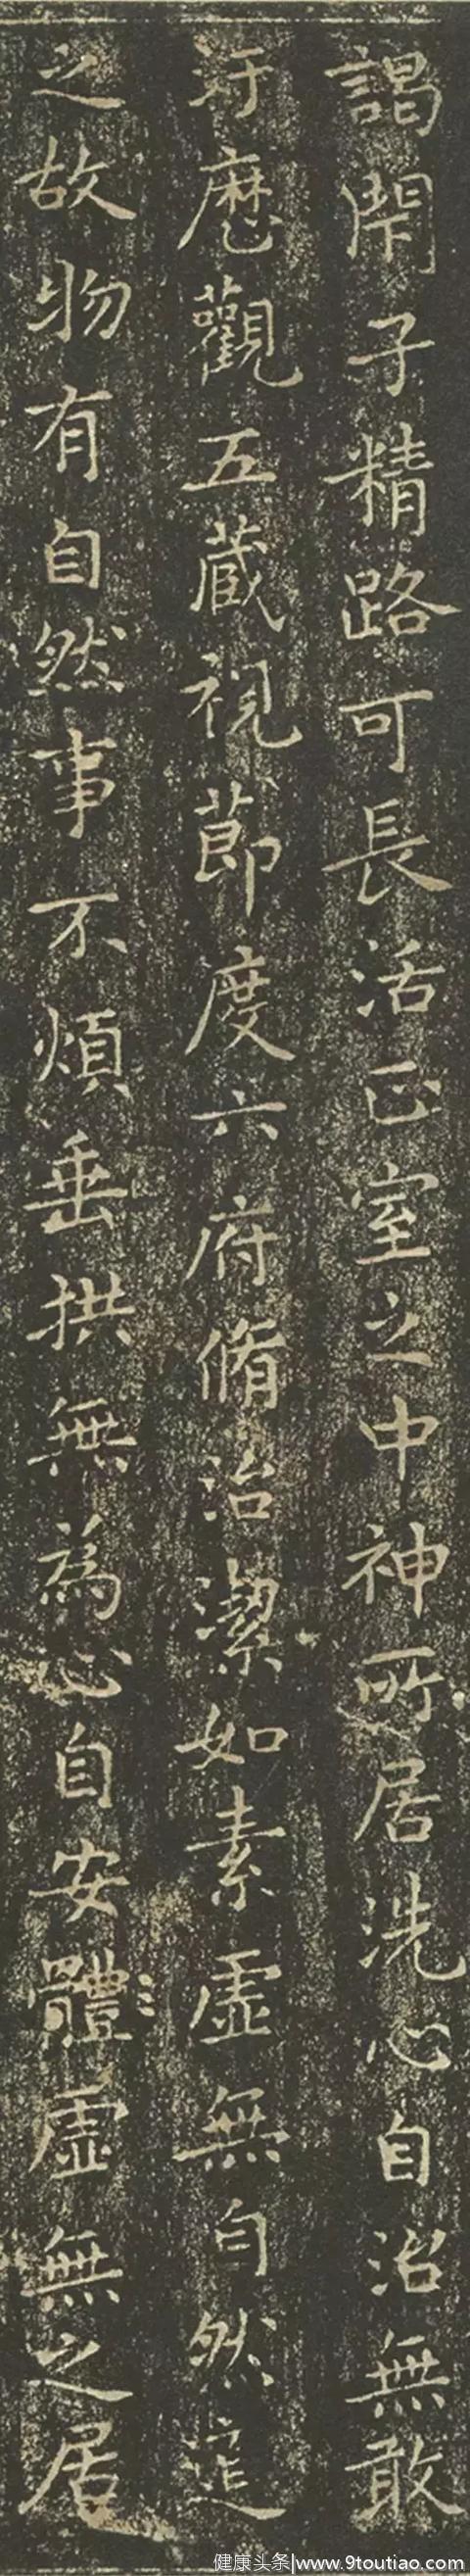 謁閇子精路可長活正室之中神所居洗心自治無敢
汙歷觀五藏視節度六府脩治潔如素虛無自然道
之故物有自然事不煩垂拱無為心自安體虛無之居
健康头条|www.9toutiao.com